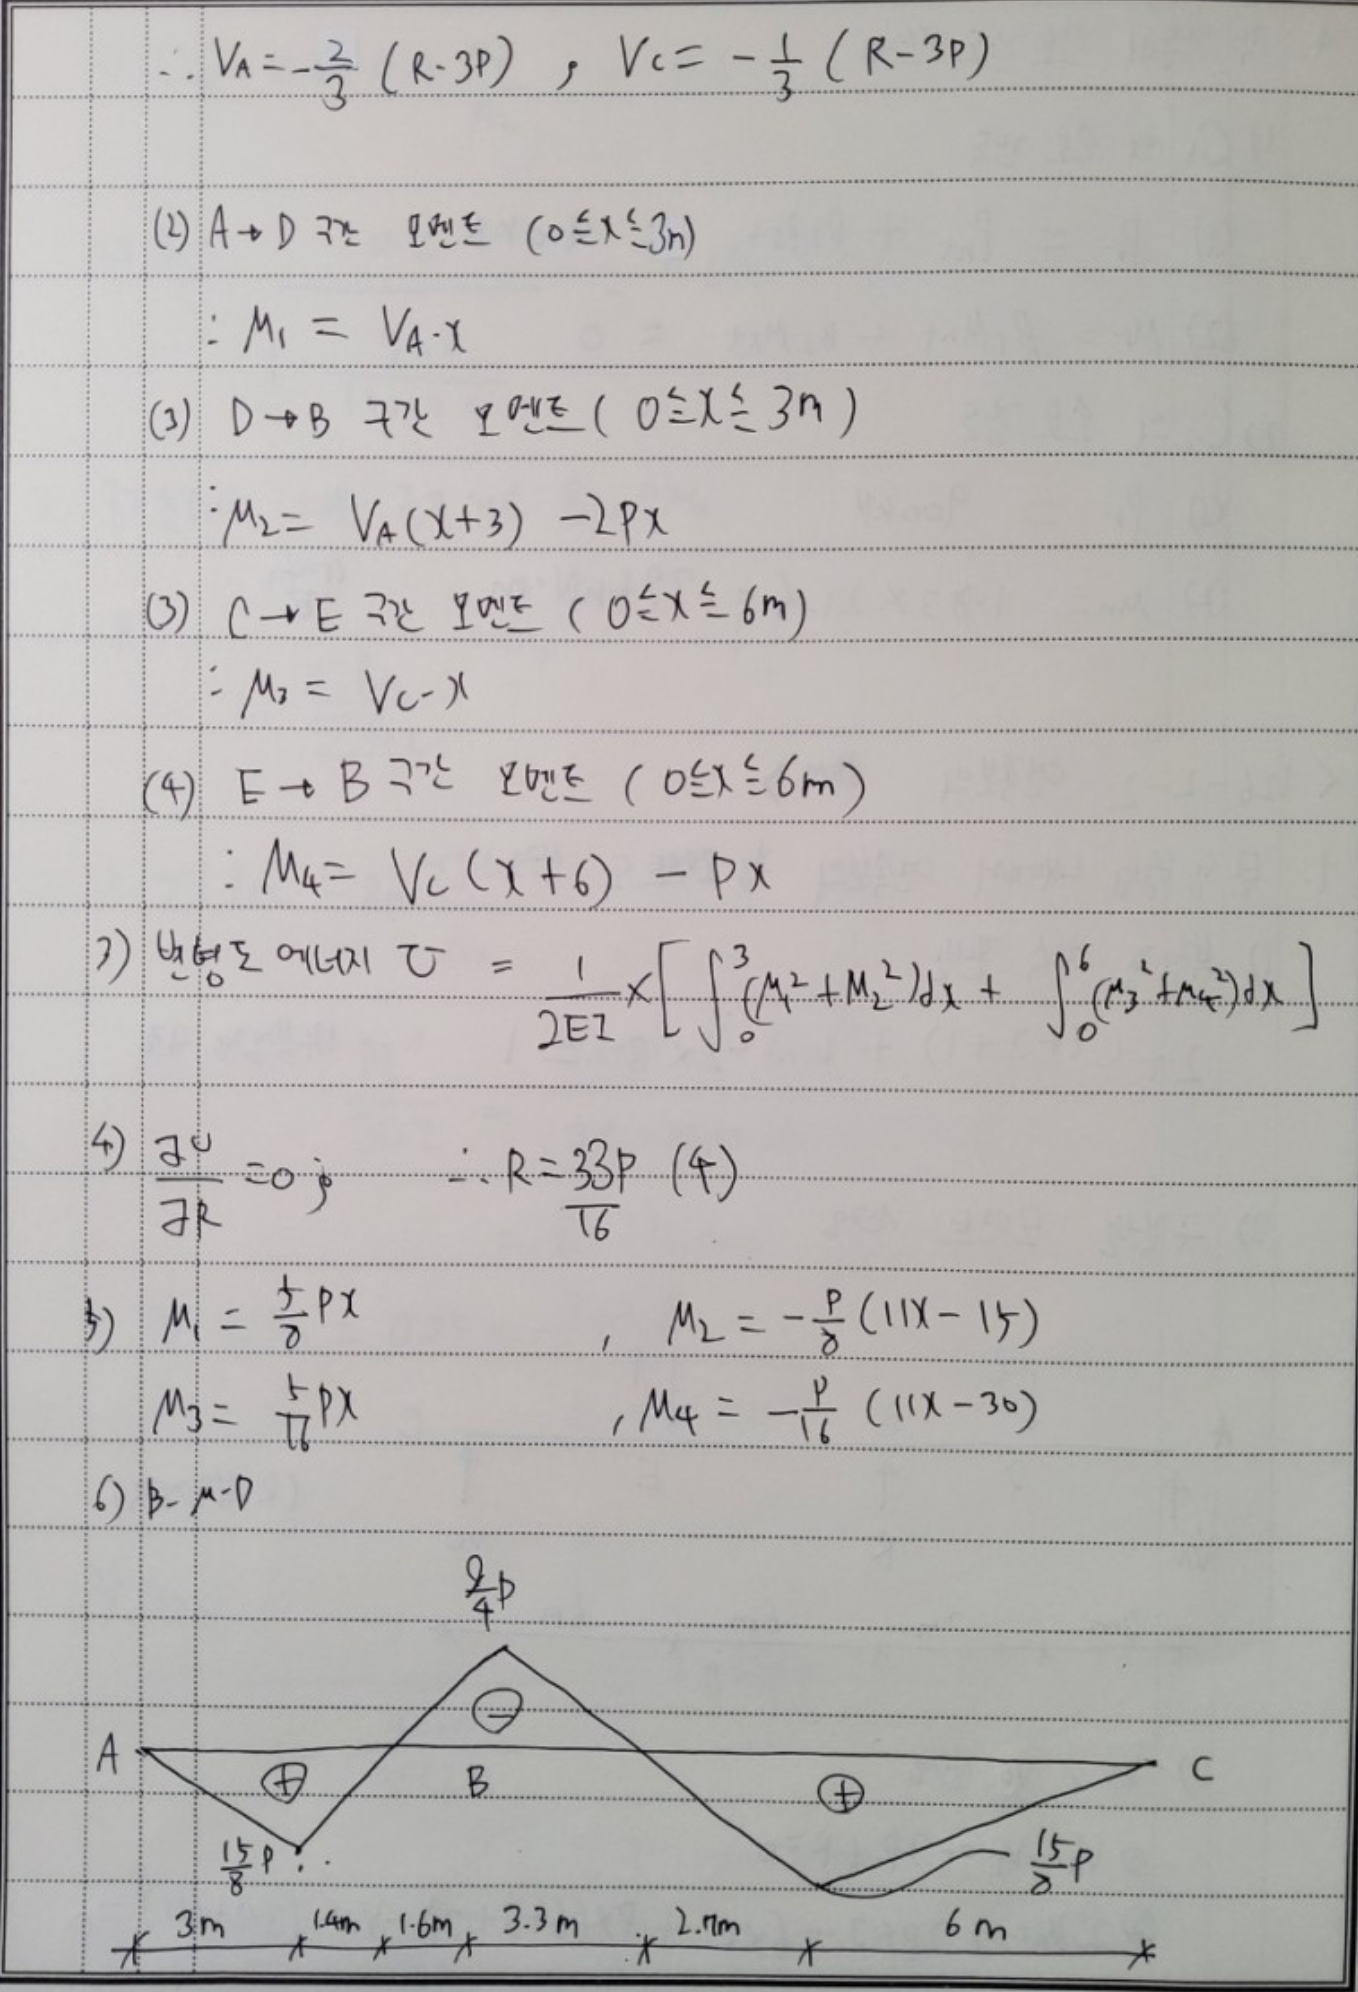 ∴ VA = -2/3 (R-3P) , VC = -1/3 (R-3P)
(2) A→D 구간 모멘트 (0≦x≦3m)
: M1 = VA·x
(3) D→B 구간 모멘트 (0≦x≦3m)
: M2 = VA(x+3) -2Px
(3) C→E 구간 모멘트 (0≦x≦6m)
: M3 = VC·x
(4) E→B 구간 모멘트 (0≦x≦6m)
: M4 = VC(x+6) - Px
3) 변형도 에너지 U = 1/2EI × [∫₀³(M1²+M2²)dx + ∫₀⁶(M3²+M4²)dx]
4) ∂U/∂R = 0 ; ∴ R = 33P/16 (↑)
5) M1 = 5/8 Px , M2 = -P/8 (11x-15)
M3 = 5/16 Px , M4 = -P/16 (11x-30)
6) B-M-D
9/4 P
⊖
A ⊕ B ⊕ C
15/8 P 15/8 P
3m 1.4m 1.6m 3.3m 2.7m 6m